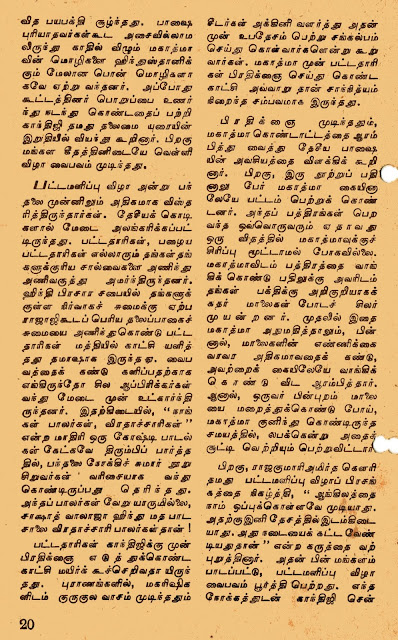 வித பயபக்தி சூழ்ந்தது. பாஷை
புரியாதவர்கள்கூட அசைவில்லாம
லிருந்து காதில் விழும் மகாத்மா
வின் மொழிகளை ஹிந்துஸ்தானிக்
கும் மேலான பொன் மொழிகளா
கவே ஏற்று வந்தனர். அப்போது
கூட்டத்தினர் பொறுப்பை உணர்
ந்து நடந்து கொண்டதைப் பற்றி
காந்திஜி தமது தலைமை யுரையின்
இறுதியில் வியந்து கூறினார். பிறகு
மங்கள கீதத்தினிடையே வெள்ளி
விழா வைபவம் முடிந்தது.
பட்டமளிப்பு விழா அன்று பந்
தலை முன்னிலும் அதிகமாக விஸ்த
ரித்திருந்தார்கள். தேசியக் கொடி
களால் மேடை அலங்கரிக்கப்பட்
டிருந்தது. பட்டதாரிகள், பழைய
பட்டதாரிகள் எல்லாரும் தங்கள் தங்
களுக்குரிய சால்வைகளை அணிந்து
அணிவகுத்து அமர்ந்திருந்தனர்.
ஹிந்தி பிரசார சபையில் தங்களுக்
குள்ள நிர்வாகச் சுமைக்கு ஏற்ப
ராஜாஜிகூடப் பெரிய தலைப்பாகைச்
சுமையை அணிந்துகொண்டு பட்ட
தாரிகள் மத்தியில் காட்சி யளித்
தது தமாஷாக இருந்தது. வைப
வத்தைக் கண்டு களிப்பதற்காக
எங்கிருந்தோ சில ஆப்பிரிக்கர்கள்
வந்து மேடை முன் உட்கார்ந்தி
ருந்தனர். இதற்கிடையில், “நாங்
கள் பாலர்கள், விரதாச்சாரிகள்”
என்ற மாதிரி ஒரு கோஷ்டி பாடல்
கள் கேட்கவே திரும்பிப் பார்த்த
தில், பந்தலை நோக்கிச் சுமார் நூறு
சிறுவர்கள் வரிசையாக வந்து
கொண்டிருப்பது தெரிந்தது.
அந்தப் பாலர்கள் வேறு யாருமில்லை,
சாக்ஷாத் வாலாஜா ஹிந்து மத பாட
சாலை விரதாச்சாரி பாலர்கள்தான்!
பட்டதாரிகள் காந்திஜிக்கு முன்
பிரதிக்ஞை எடுத்துக்கொண்ட
காட்சி மயிர்க் கூச்செறிவதா யிருந்
தது. புராணங்களில், மகரிஷிக
ளிடம் குருகுல வாசம் முடிந்ததும்
சீடர்கள் அக்கினி வளர்த்து அதன்
முன் உபதேசம் பெற்று சங்கல்பம்
செய்து கொள்வார்களென்று கூறு
வார்கள். மகாத்மா முன் பட்டதாரி
கள் பிரதிக்ஞை செய்து கொண்ட
காட்சி அவ்வாறு தான் சாந்நித்யம்
நிறைந்த சம்பவமாக இருந்தது.
பிரதிக்ஞை முடிந்ததும்,
மகாத்மா கொண்டாட்டத்தை ஆரம்
பித்து வைத்து தேசிய பாஷை
யின் அவசியத்தை விளக்கிக் கூறி
னார். பிறகு, இரு நூற்றுப் பதி
னாறு பேர் மகாத்மா கையினா
லேயே பட்டம் பெற்றுக் கொண்
டனர். அந்தப் பத்திரங்கள் பெற
வந்த ஒவ்வொருவரும் ஏதாவது
ஒரு விதத்தில் மகாத்மாவுக்குச்
சிரிப்பு மூட்டாமல் போகவில்லை.
மகாத்மாவிடம் பத்திரத்தை வாங்
கிக் கொண்டு பதிலுக்கு அவரிடம்
தங்கள் பக்திக்கு அறிகுறியாகக்
கதர் மாலைகள் போடச் சிலர்
முயன்றனர். முதலில் இதை
மகாத்மா அனுமதித்தாலும், பின்
னால், மாலைகளின் எண்ணிக்கை
வரவர அதிகமாவதைக் கண்டு,
அவற்றைக் கையிலேயே வாங்கிக்
கொண்டு விட ஆரம்பித்தார்.
ஆனால், ஒருவர் பின்புறம் மாலை
யை மறைத்துக்கொண்டு போய்,
மகாத்மா குனிந்து கொண்டிருந்த
சமயத்தில், லபக்கென்று அதைச்
சூட்டி வெற்றியும் பெற்றுவிட்டார்
பிறகு, ராஜகுமாரி அமிர்த கௌரி
தமது பட்டமளிப்பு விழாப் பிரசங்
கத்தை நிகழ்த்தி, “ஆங்கிலத்தை
நாம் ஒப்புக்கொள்ளவே முடியாது.
அதற்கு இனி தேசத்தில் இடம் இல்லை
யாது. அது நடையைக் கட்ட வேண்
டியதுதான்” என்ற கருத்தை வற்
புறுத்தினார். அதன் பின் மங்களம்
பாடப்பட்டு, பட்டமளிப்பு விழா
வைபவம் பூர்த்தி பெற்றது. எந்த
நோக்கத்துடன் காந்திஜி சென்
20